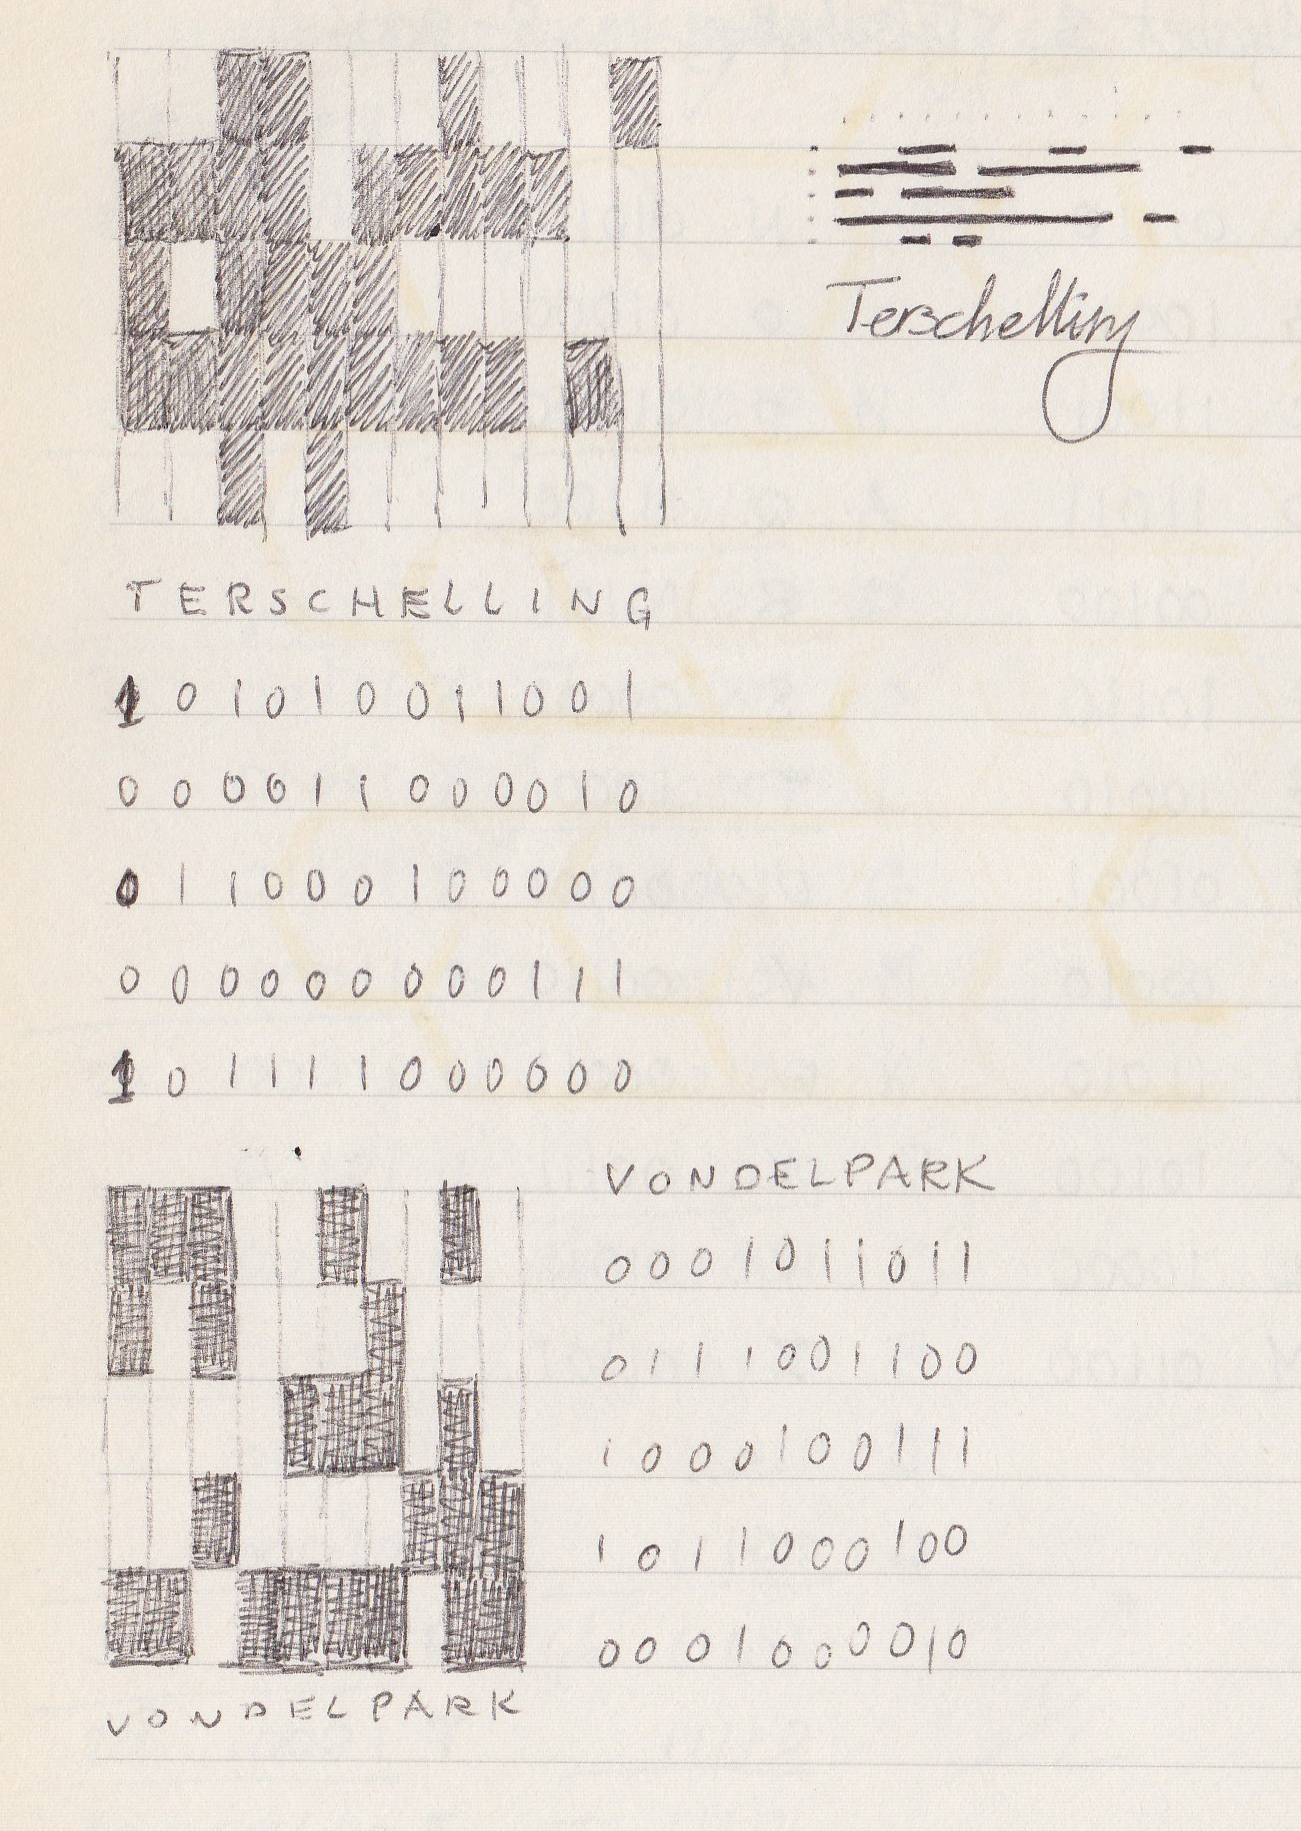 Terschelling
TERSCHELLING
101010011001
000011000010
011000100000
000000000111
101111000000
VONDELPARK
0001011011
0111001100
1000100111
1011000100
0001000010
VONDELPARK